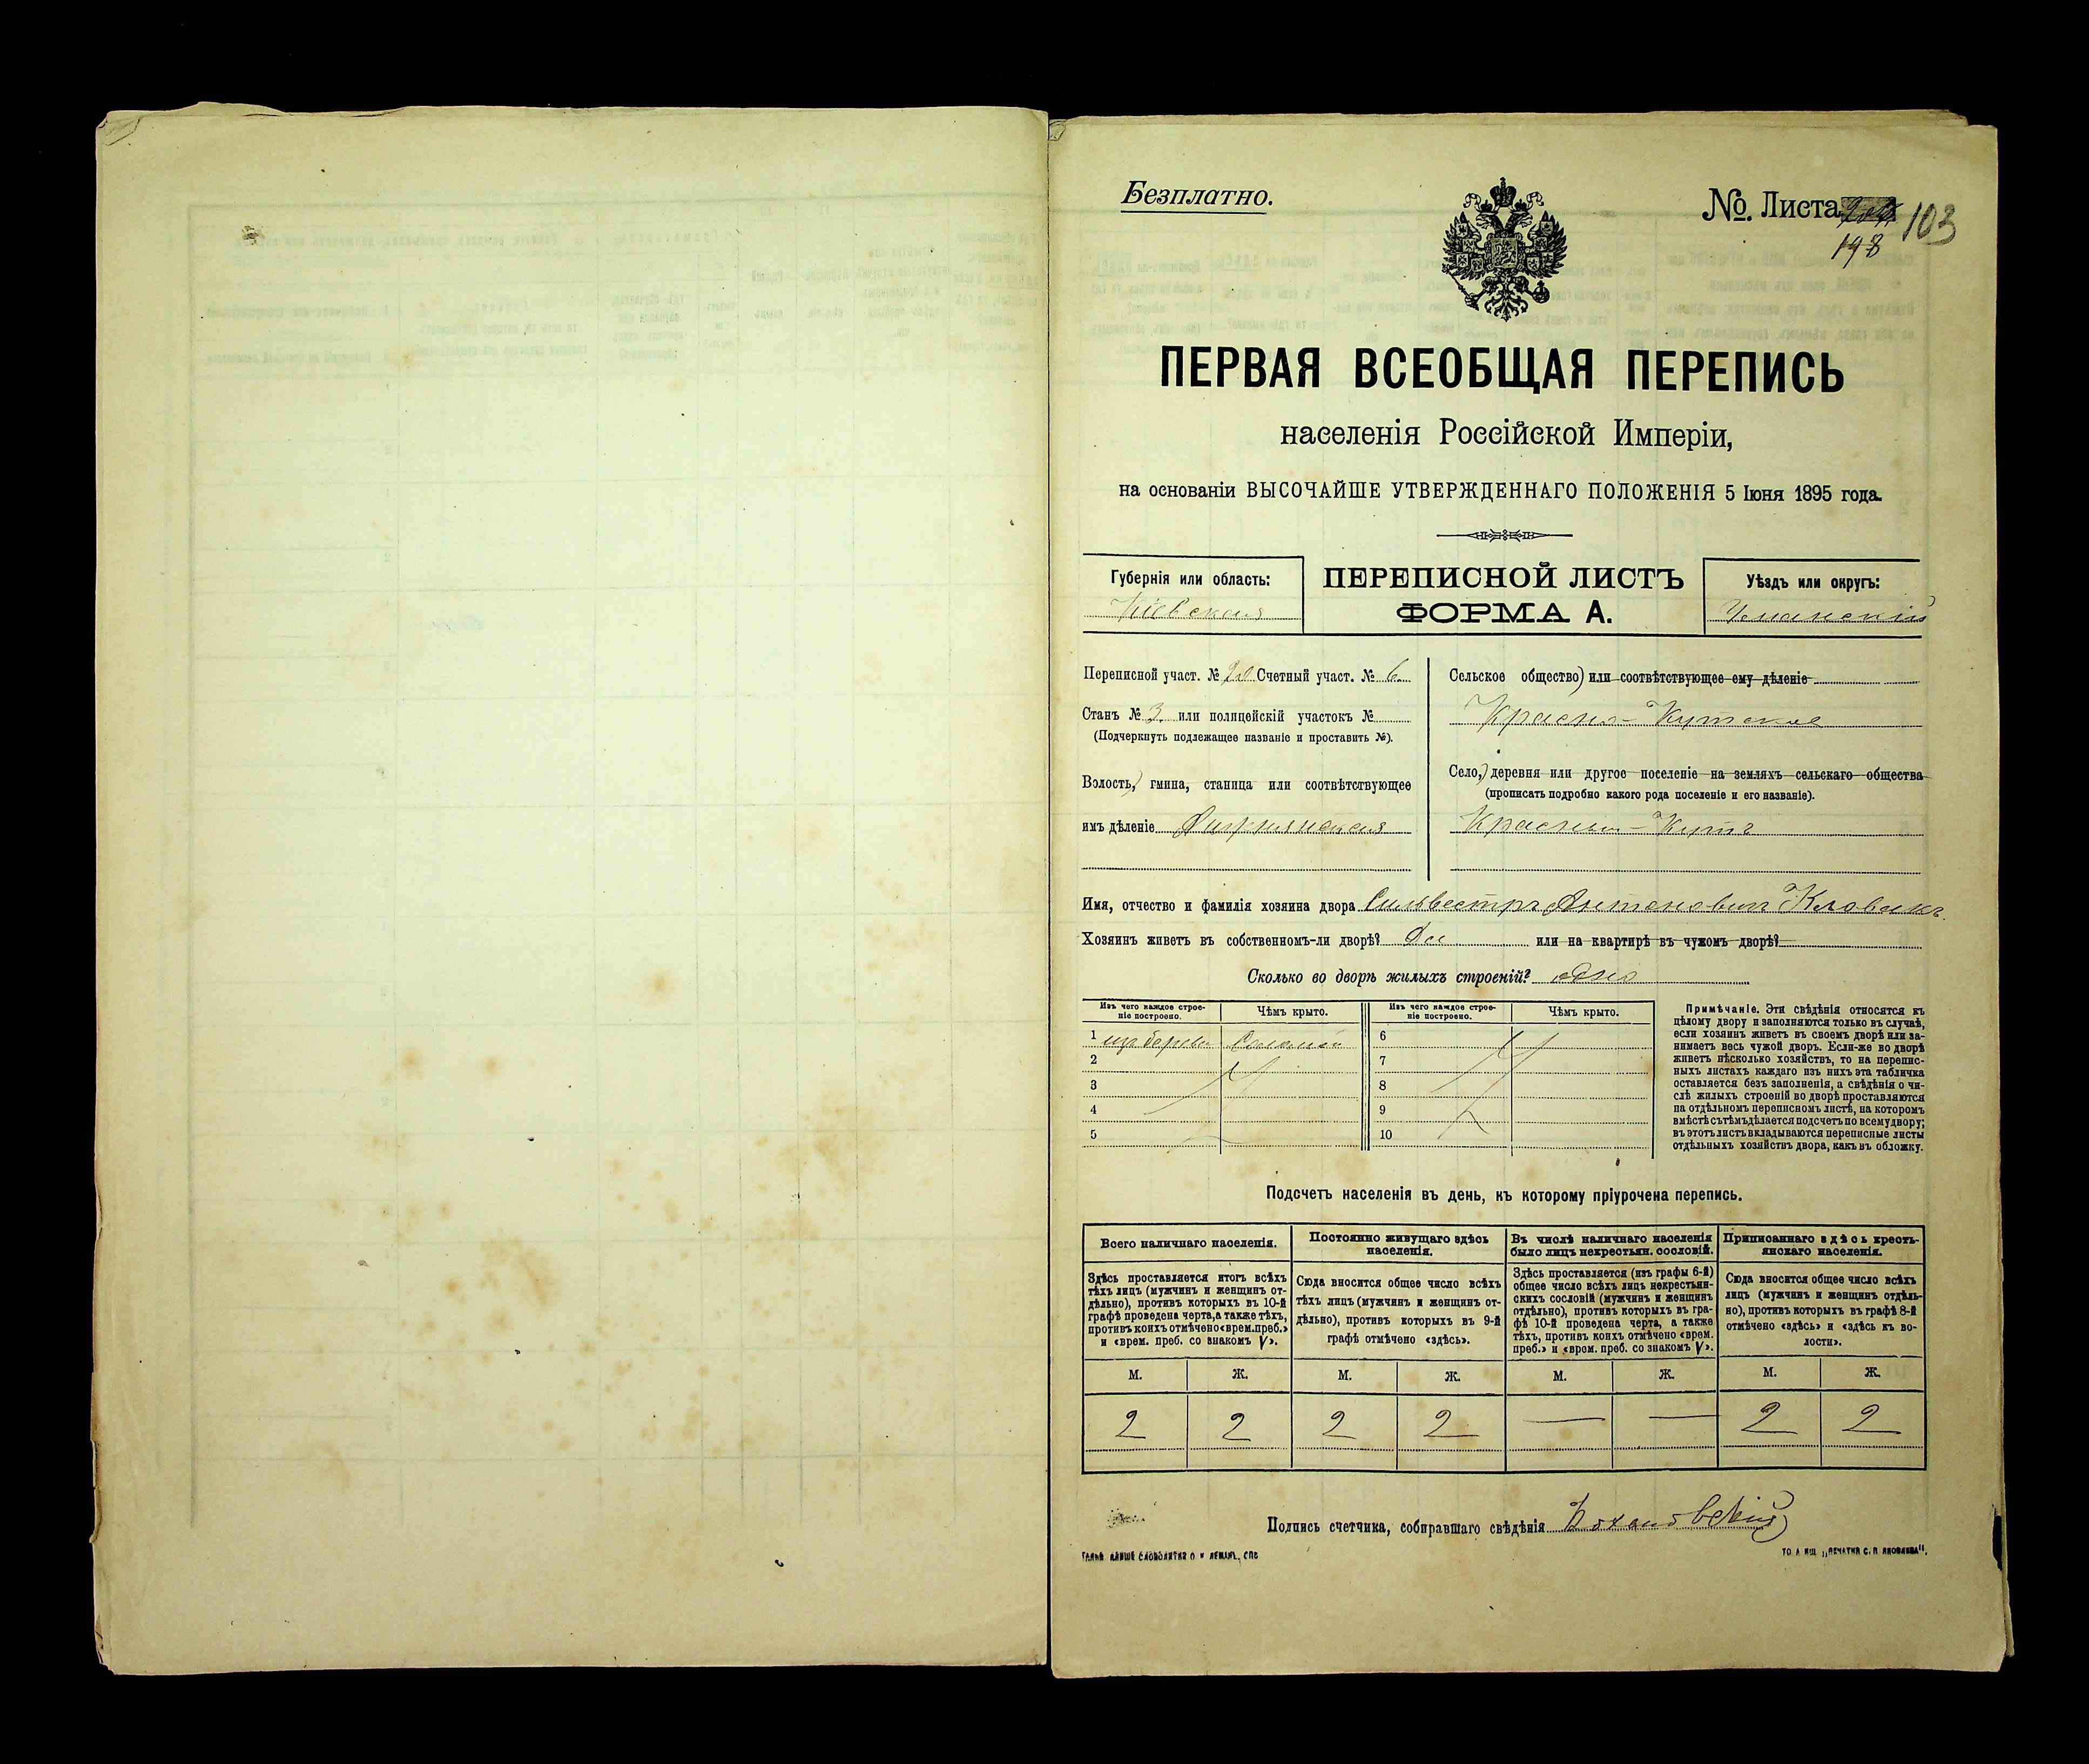 Безплатно.
№. Листа
198
103
ПЕРВАЯ ВСЕОБЩАЯ ПЕРЕПИСЬ
населенія Россійской Имперіи,
на основаніи ВЫСОЧАЙШЕ УТВЕРЖДЕННАГО ПОЛОЖЕНІЯ 5 Іюня 1895 года.
Губернія или область:
Кіевская
ПЕРЕПИСНОЙ ЛИСТЪ
ФОРМА А.
Уѣздъ или округъ:
Уманскій
Переписной участ. № 20 Счетный участ. № 6
Станъ № 3 или полицейскій участокъ №
(Подчеркнуть подлежащее названіе и проставить №).
Волость, гмина, станица или соотвѣтствующее
имъ дѣленіе
Сельское общество) или соотвѣтствующее ему дѣленіе
Красно-Кутское
Село, деревня или другое поселеніе на земляхъ сельскаго общества
(прописать подробно какого рода поселеніе и его названіе).
Красный-Кутъ
Имя, отчество и фамилія хозяина двора Сильвестръ Антоновичъ
Хозяинъ живетъ въ собственномъ-ли дворѣ? Да или на квартирѣ въ чужомъ дворѣ?
Сколько во дворѣ жилыхъ строеній? одно
Изъ чего каждое строе-
ніе построено.
Чѣмъ крыто.
Изъ чего каждое строе-
ніе построено.
Чѣмъ крыто.
1 изъ дерева Соломой
2
3
4
5
6
7
8
9
10
Примѣчаніе. Эти свѣдѣнія относятся къ
цѣлому двору и заполняются только въ случаѣ,
если хозяинъ живетъ въ своемъ дворѣ или за-
нимаетъ весь чужой дворъ. Если-же во дворѣ
живетъ нѣсколько хозяйствъ, то на перепис-
ныхъ листахъ каждаго изъ нихъ эта табличка
оставляется безъ заполненія, а свѣдѣнія о чи-
слѣ жилыхъ строеній во дворѣ проставляются
на отдѣльномъ переписномъ листѣ, на которомъ
вмѣстѣ съ тѣмъ дѣлается подсчетъ по всему двору;
въ этотъ листъ вкладываются переписные листы
отдѣльныхъ хозяйствъ двора, какъ въ обложку.
Подсчетъ населенія въ день, къ которому пріурочена перепись.
Всего наличнаго населенія.
Здѣсь проставляется итогъ всѣхъ
тѣхъ лицъ (мужчинъ и женщинъ от-
дѣльно), противъ которыхъ въ 10-й
графѣ проведена черта, а также тѣхъ,
противъ коихъ отмѣчено «врем. преб.»
и «врем. преб. со знакомъ V».
Постоянно живущаго здѣсь
населенія.
Сюда вносится общее число всѣхъ
тѣхъ лицъ (мужчинъ и женщинъ от-
дѣльно), противъ которыхъ въ 9-й
графѣ отмѣчено «здѣсь».
Въ числѣ наличнаго населенія
было лицъ некрестьян. сословій.
Здѣсь проставляется (изъ графы 6-й)
общее число всѣхъ лицъ некрестьян-
скихъ сословій (мужчинъ и женщинъ
отдѣльно), противъ которыхъ въ гра-
фѣ 10-й проведена черта, а также
тѣхъ, противъ коихъ отмѣчено «врем.
преб.» и «врем. преб. со знакомъ V».
Приписаннаго здѣсь кресть-
янскаго населенія.
Сюда вносится общее число всѣхъ
лицъ (мужчинъ и женщинъ отдѣль-
но), противъ которыхъ въ графѣ 8-й
отмѣчено «здѣсь» и «здѣсь къ во-
лости».
М. Ж. М. Ж. М. Ж. М. Ж.
2 2 2 2 — — 2 2
Подпись счетчика, собиравшаго свѣдѣнія